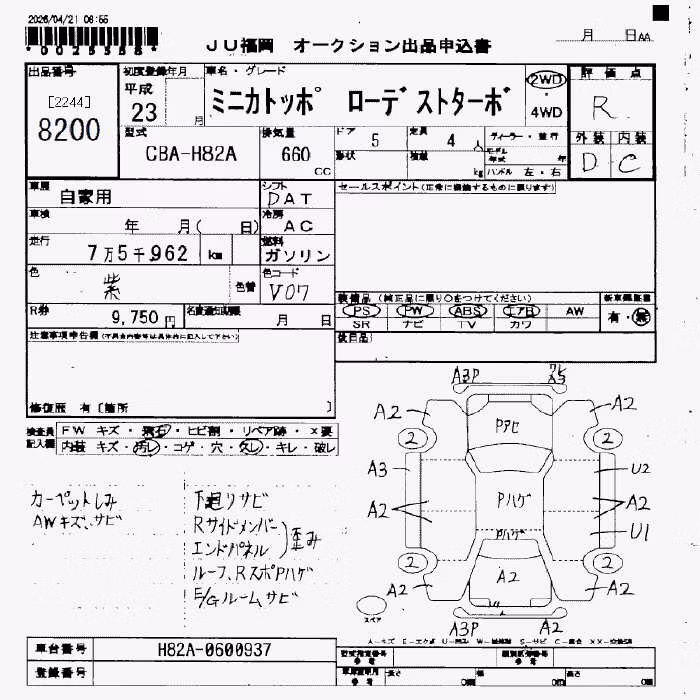 2026/04/21 06:55
*0025558*
JU福岡 オークション出品申込書
月 日AA
出品番号
[2244]
8200
初度登録年月
平成
23 月
車名・グレード
ミニカトッポ ローデストターボ
2WD
・
4WD
評価点
R
外装 内装
D C
型式
CBA-H82A
排気量
660
cc
ドア 5
定員 4 人
形状
積載 kg
ディーラー・並行
モデル年式 年
ハンドル 左・右
車歴
自家用
シフト
DAT
車検
年 月( 日)
冷房
AC
走行
7万5千,962 km
燃料
ガソリン
色
紫
色替
色コード
V07
R券
9,750円
名変通知期限
月 日
セールスポイント(正常に機能するものに限ります)
装備品 (純正品に限り○をつけてください)
PS PW ABS エアB AW
SR ナビ TV カワ
新車保証書
有・無
後日品
注意事項申告欄
修復歴 有〔箇所 〕
検査員記入欄
FW キズ・飛石・ヒビ割・リペア跡・×要
内装 キズ・汚レ・コゲ・穴・欠レ・キレ・破レ
カーペットしみ
AWキズ、サビ
下廻りサビ
Rサイドメンバー
エンドパネル 歪み
ルーフ、RスポPハゲ
E/Gルーム、サビ
A3P
A2 A2
Pアセ
2 2
A3 U2
Pハゲ
A2 A2
Pハゲ
U1
2 2
A2 A2 A2
スペア
A3P A2
車台番号
H82A-0600937
登録番号
型式指定番号
類別区分番号
長さ cm 幅 cm 高さ cm